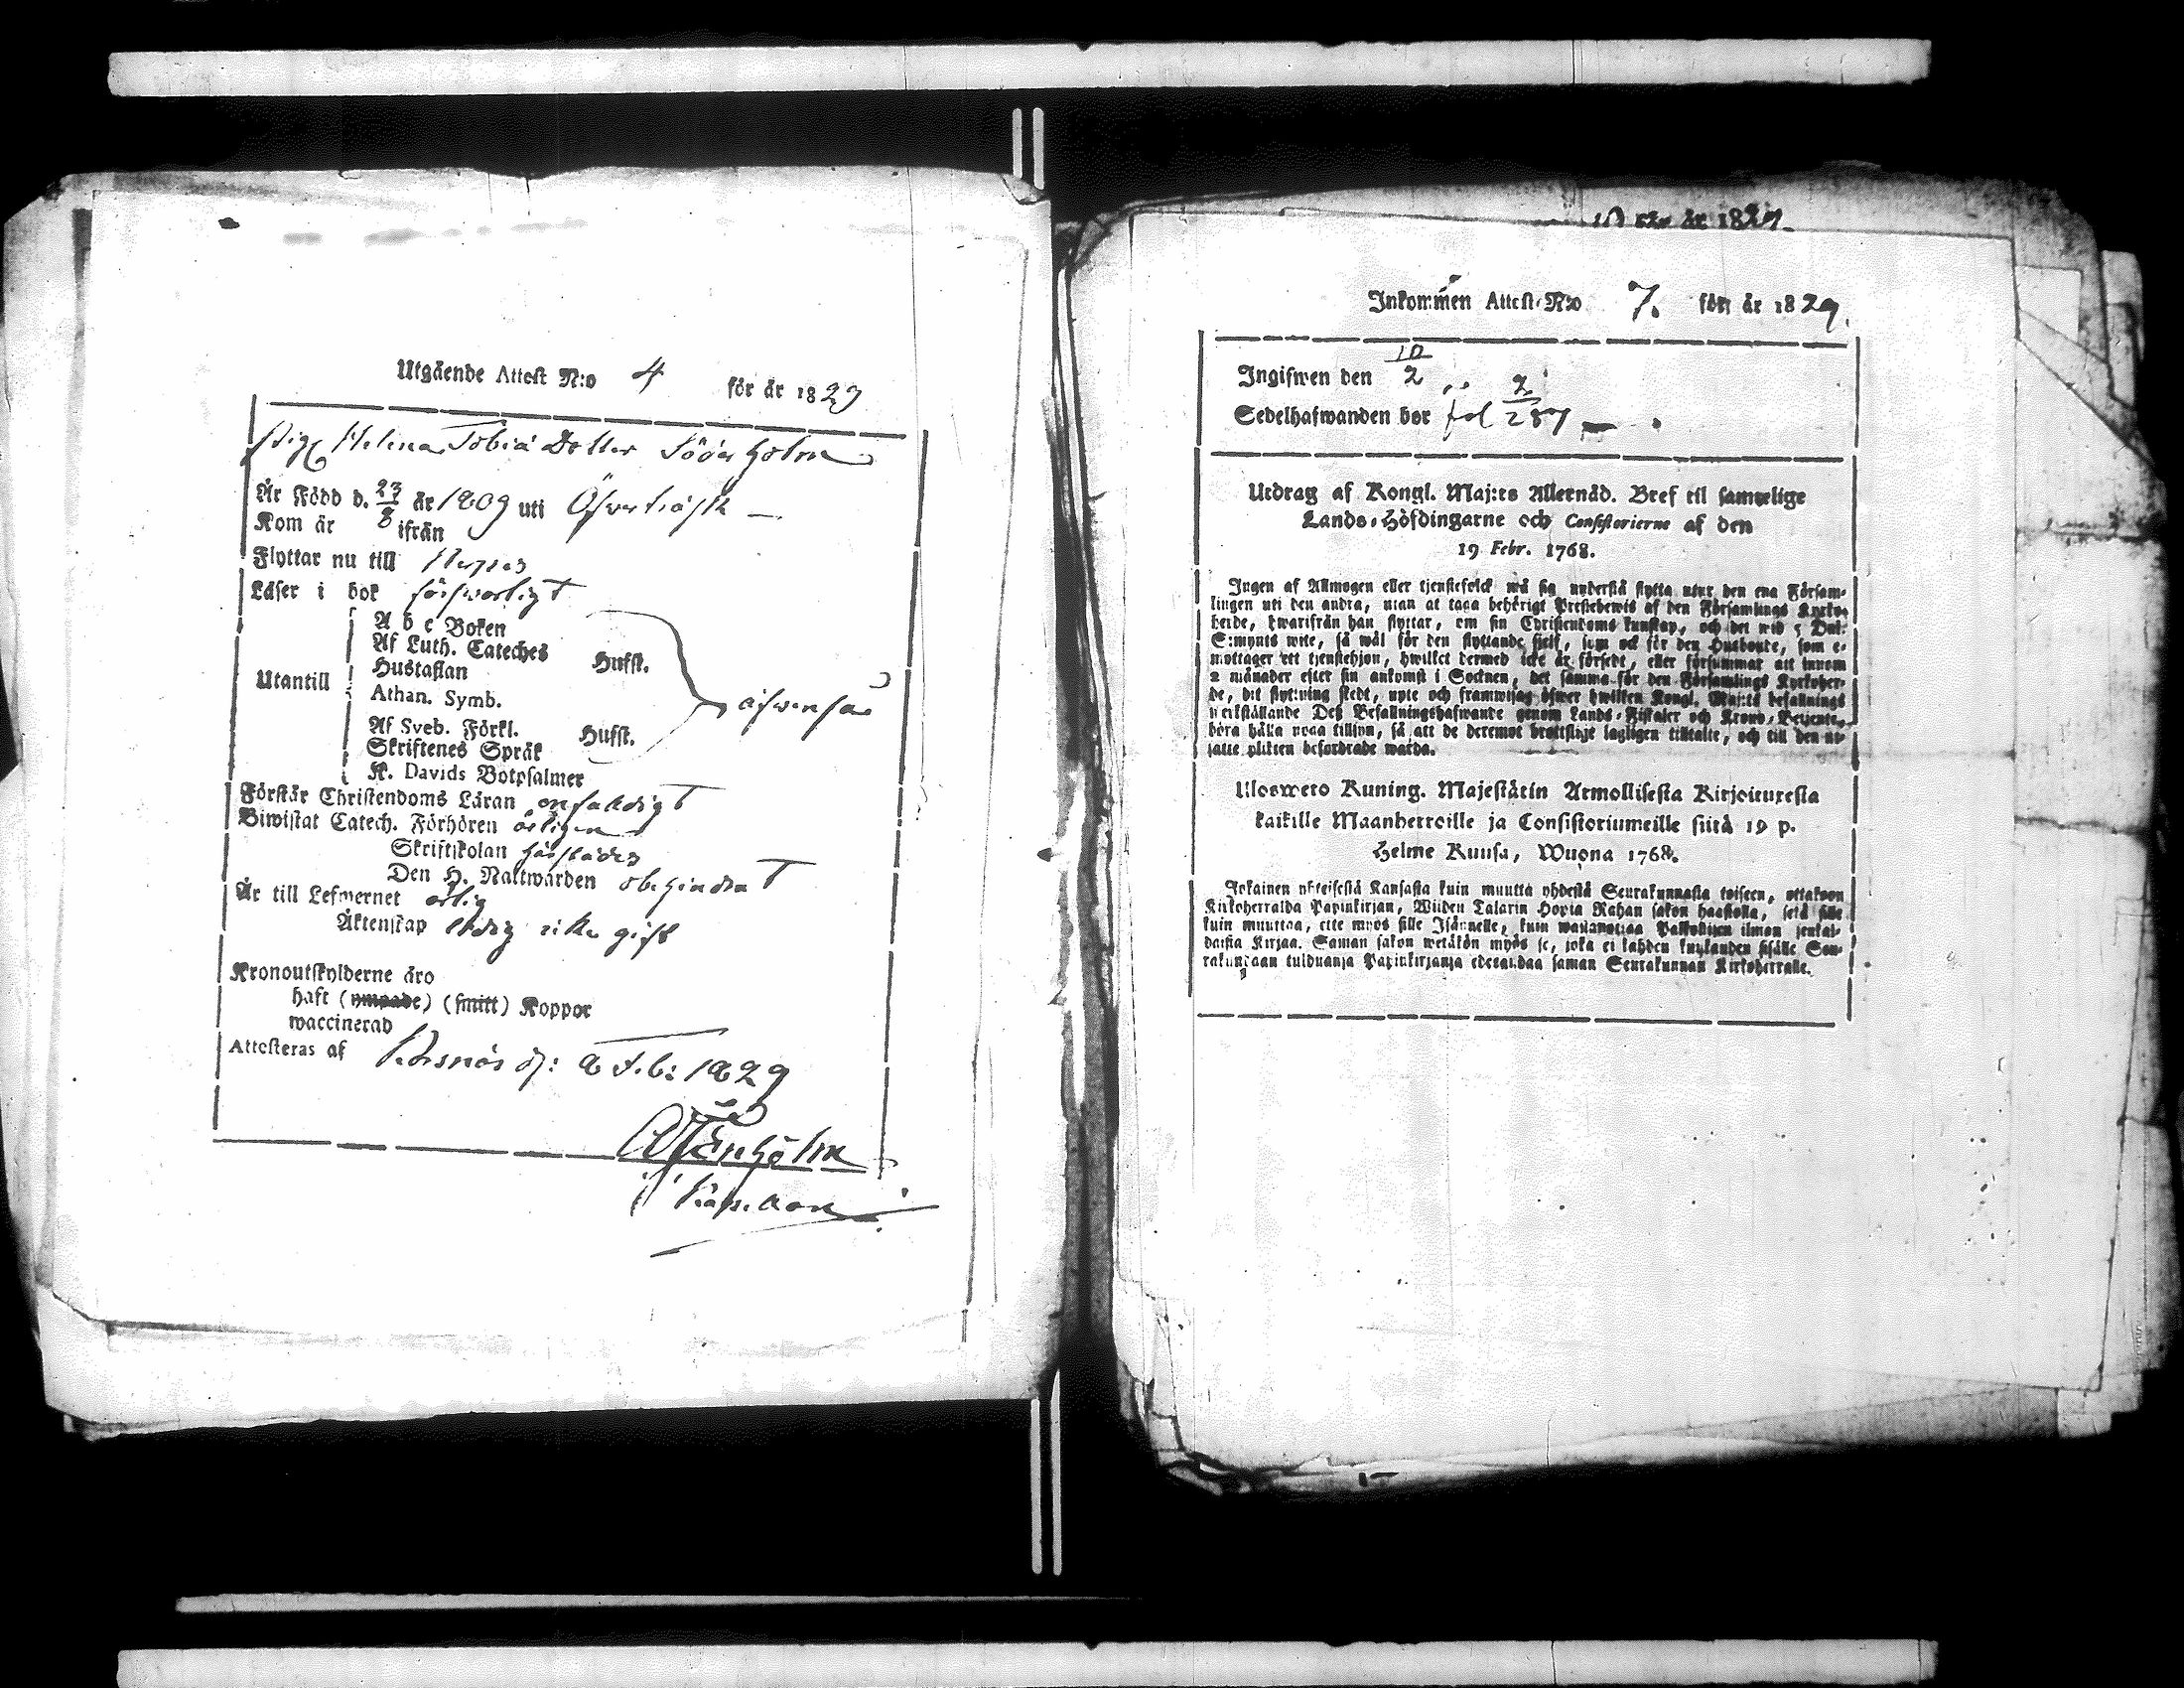 Utgående Attest N:o 4 för år 1829
Pig. Helena Tobiä Dotter Söderholm
Är Född d. 23/8 år 1809 uti Öfverträsk
Kom år ifrån
Flyttar nu till
Läser i bok försvarligt
A b c Boken
Af Luth. Cateches Husfl.
Hustaflan
Utantill
Athan. Symb. äfvenså
Af Sveb. Förkl. Husfl.
Skriftenes Språk
K. Davids Botpsalmer
Förstår Christendoms Läran enfaldigt
Biwistat Catech. Förhören årligen
Skriftskolan härstädes
Den H. Nattwarden obehindrat
Är till Lefwernet ärlig
Äktenskap ledig icke gift
Kronoutskylderne äro
haft (ympade) (smitt) Koppor
waccinerad
Attesteras af 1829
för år 1829
Inkommen Attest N:o 7. för år 1829.
Ingifwen den 10/2
Sedelhafwanden bor fol 2/287
Utdrag af Kongl. Maj:ts Allernåd. Bref til samtelige
Lands-Höfdingarne och Consistorierne af den
19 Febr. 1768.
Ingen af Allmogen eller tjenstefolck må sig understå flytta utur den ena Försam-
lingen uti den andra, utan at taga behörigt Prestebewis af den Församlings Kyrko-
herde, hwarifrån han flyttar, om sin Christendoms kunskap, och det wid 5 Dal:
S:mynts wite, så wäl för den flyttande sjelf, som ock för den Husbonde, som e-
mottager ett tjenstehjon, hwilket dermed icke är försedt, eller försummar att innom
2 månader efter sin ankomst i Socknen, det samma för den Församlings Kyrkoher-
de, dit flyttning skedt, upte och framwisa; öfwer hwilken Kongl. Maj:ts befallnings
werkställande Deß Befallningshafwande genom Lands-Fiskaler och Krono-Betjente,
böra hålla noga tillsyn, så att de deremot brottslige lagligen tilltalte, och till den ut-
satte plikten befordrade warda.
Uloswero Kuning. Majestätin Armollisesta Kirjoituxesta
kaikille Maanherroille ja Consistoriumeille siitä 19 p.
Helme Kuusa, Wuona 1768.
Jokainen yhteisestä Kansasta kuin muutta yhdestä Seurakunnasta toiseen, ottakoon
Kirkoherralda Papinkirjan, Wiiden Talarin Hopia Rahan sakon haastolla, sekä sille
kuin muuttaa, ette myös sille Isännelle, kuin wastanottaa Palkollisen ilman senkal-
daista Kirjaa. Saman sakon wetäkön myös se, joka ei kahden kuukauden sisälle Seu-
rakundaan tulduansa Papinkirjansa edesandaa saman Seurakunnan Kirkoherralle.